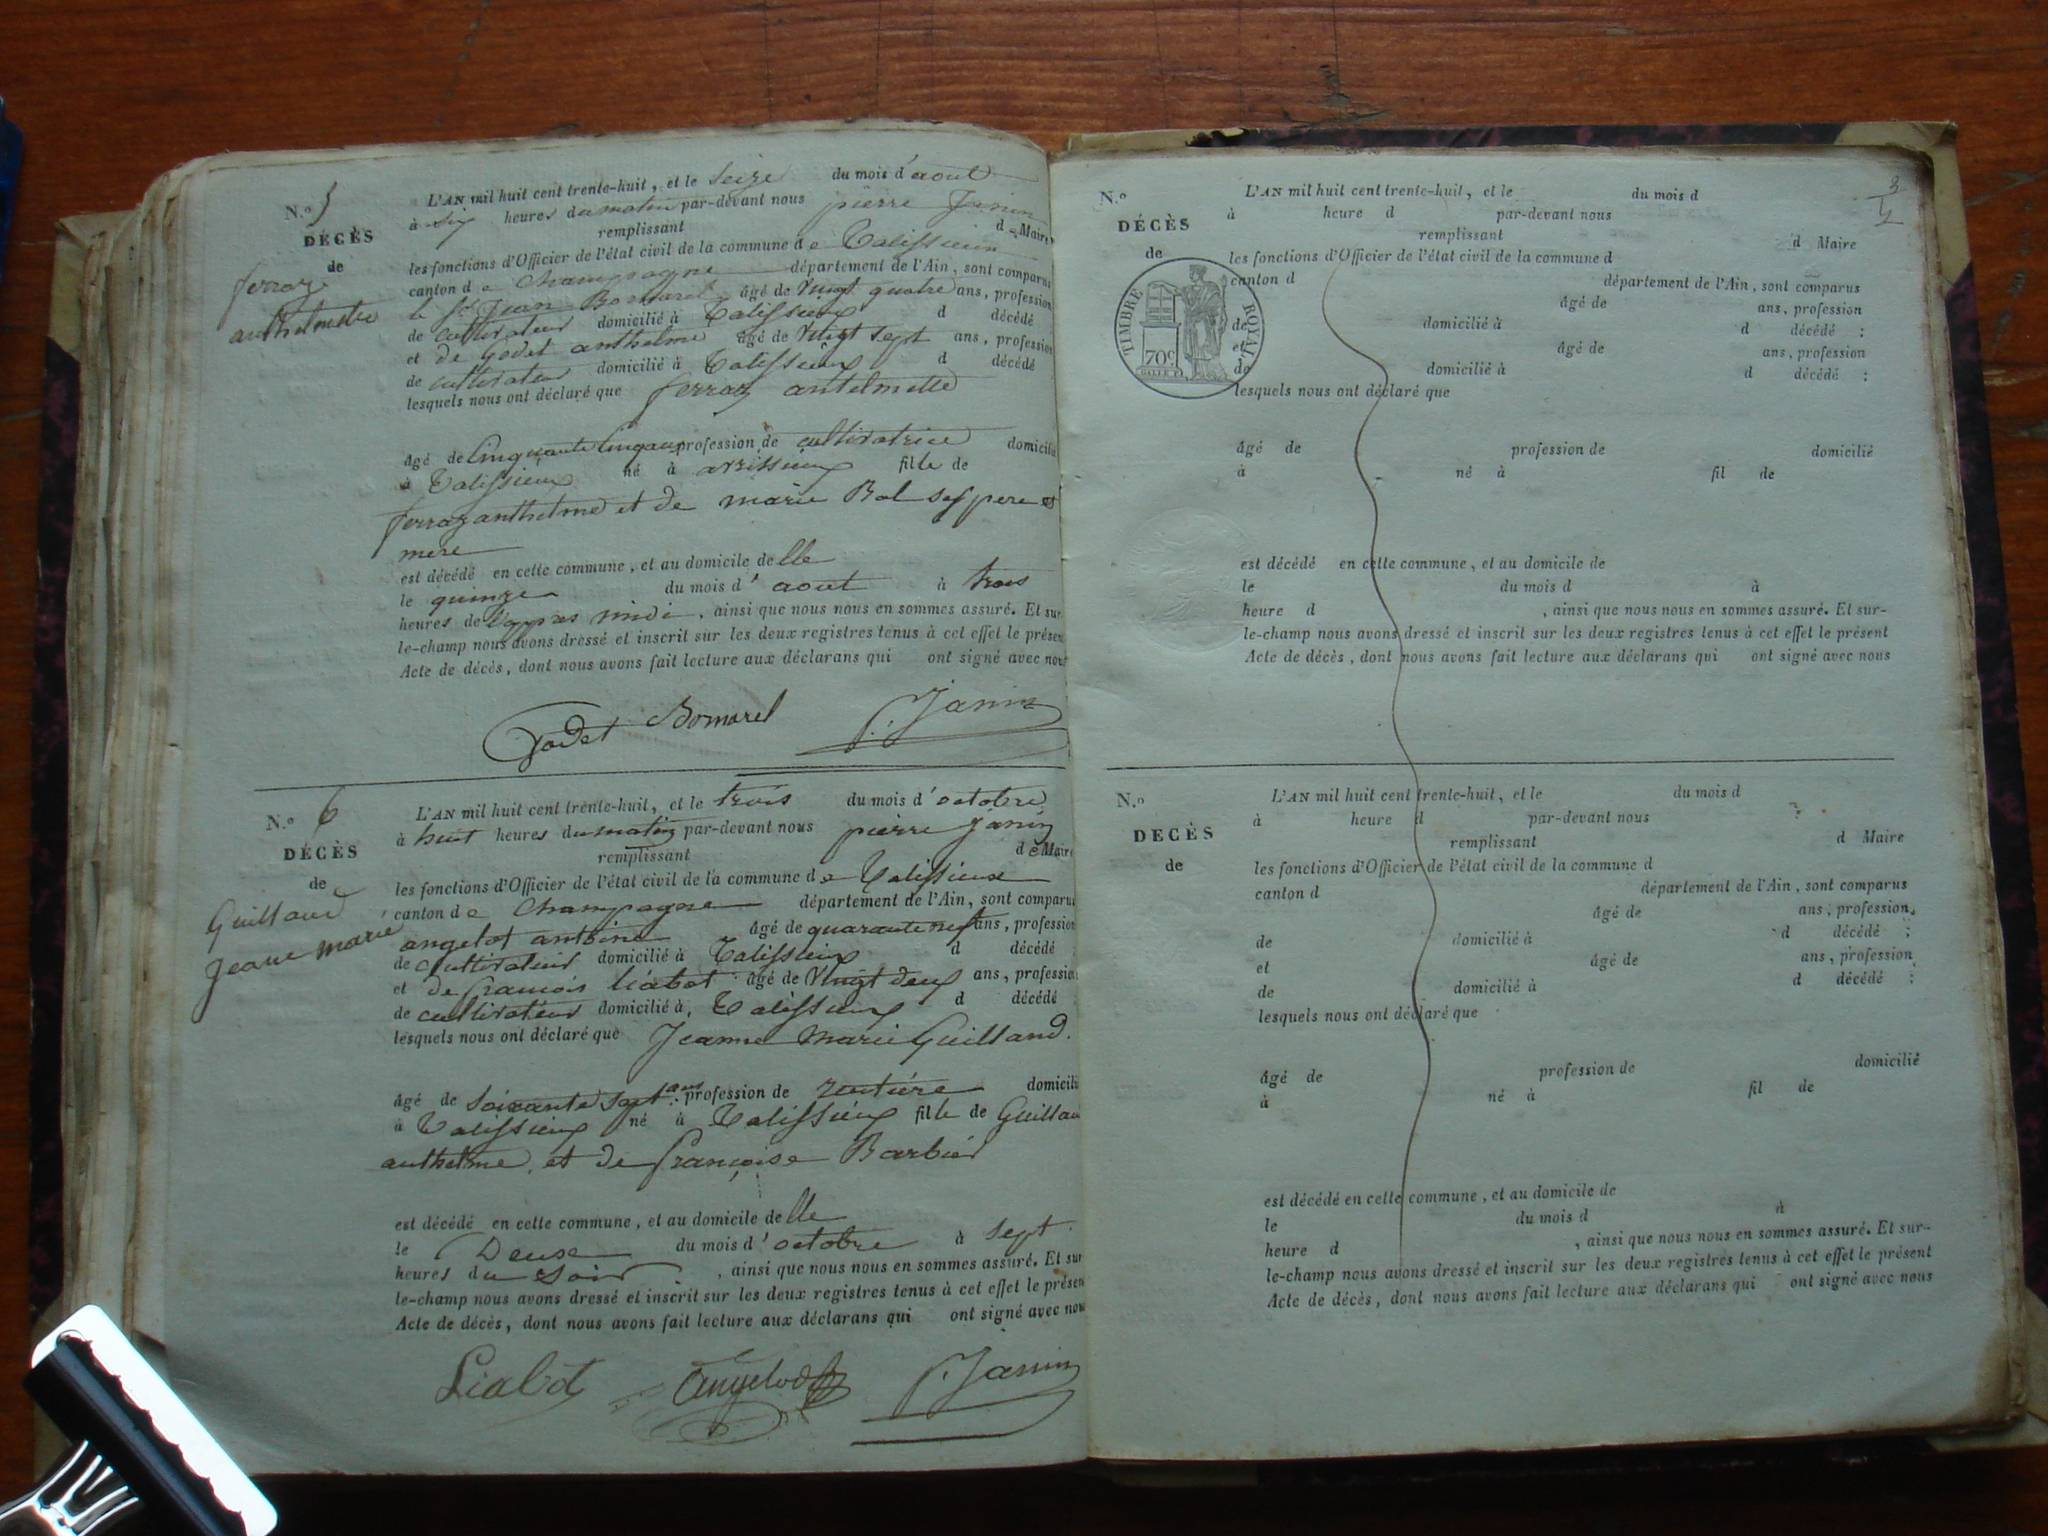 N.o 5
DÉCÈS
de
ferraz
anthelmette
L'AN mil huit cent trente-huit, et le seize du mois d'aout
à six heures du matin par-devant nous pierre Janin
remplissant de Maire
les fonctions d'Officier de l'état civil de la commune de Talissieux
canton de Champagne département de l'Ain, sont comparus
le Sr Jean Bomarel âgé de vingt quatre ans, profession
de cultivateur domicilié à Talissieux d décédé
et de Godet anthelme âgé de vingt sept ans, profession
de cultivateur domicilié à Talissieux d décédé
lesquels nous ont déclaré que ferraz antelmette
âgé de Cinquante Cinq ans profession de cultivatrice domicilié
à Talissieux né à arvissieux fille de
ferraz anthelme et de marie Bal ses pere et
mere
est décédé en cette commune, et au domicile delle
le quinze du mois d'aout à trois
heures de l'appres midi, ainsi que nous nous en sommes assuré. Et sur-
le-champ nous avons dressé et inscrit sur les deux registres tenus à cet effet le présent
Acte de décès, dont nous avons fait lecture aux déclarans qui ont signé avec nous
Godet Bomarel P. Janin
N.o 6
DÉCÈS
de
Guilland
Jeane marie
L'AN mil huit cent trente-huit, et le trois du mois d'octobre
à huit heures du matin par-devant nous pierre Janin
remplissant de Maire
les fonctions d'Officier de l'état civil de la commune de Talissieux
canton de Champagne département de l'Ain, sont comparus
angelot antoine âgé de quarante neuf ans, profession
de cultivateur domicilié à Talissieux d décédé
et de francois liabot âgé de vingt deux ans, profession
de cultivateur domicilié à Talissieux d décédé
lesquels nous ont déclaré que Jeanne Marie Guilland.
âgé de soixante sept ans profession de rentière domicilié
à Talissieux né à Talissieux fille de Guillan
anthelme et de françoise Barbier
est décédé en cette commune, et au domicile delle
le Deuse du mois d'octobre à sept
heures du soir, ainsi que nous nous en sommes assuré. Et sur
le-champ nous avons dressé et inscrit sur les deux registres tenus à cet effet le présent
Acte de décès, dont nous avons fait lecture aux déclarans qui ont signé avec nous
Liabot Angelot P. Janin
3
N.o
DÉCÈS
de
TIMBRE ROYAL
70c
L'AN mil huit cent trente-huit, et le du mois d
à heure d par-devant nous
remplissant d Maire
les fonctions d'Officier de l'état civil de la commune d
canton d département de l'Ain, sont comparus
âgé de ans, profession
de domicilié à d décédé ;
et âgé de ans, profession
de domicilié à d décédé ;
lesquels nous ont déclaré que
âgé de profession de domicilié
à né à fil de
est décédé en cette commune, et au domicile de
le du mois d à
heure d , ainsi que nous nous en sommes assuré. Et sur-
le-champ nous avons dressé et inscrit sur les deux registres tenus à cet effet le présent
Acte de décès, dont nous avons fait lecture aux déclarans qui ont signé avec nous
N.o
DECÈS
de
L'AN mil huit cent trente-huit, et le du mois d
à heure d par-devant nous
remplissant d Maire
les fonctions d'Officier de l'état civil de la commune d
canton d département de l'Ain, sont comparus
âgé de ans, profession
de domicilié à d décédé ;
et âgé de ans, profession
de domicilié à d décédé ;
lesquels nous ont déclaré que
âgé de profession de domicilié
à né à fil de
est décédé en cette commune, et au domicile de
le du mois d à
heure d , ainsi que nous nous en sommes assuré. Et sur-
le-champ nous avons dressé et inscrit sur les deux registres tenus à cet effet le présent
Acte de décès, dont nous avons fait lecture aux déclarans qui ont signé avec nous